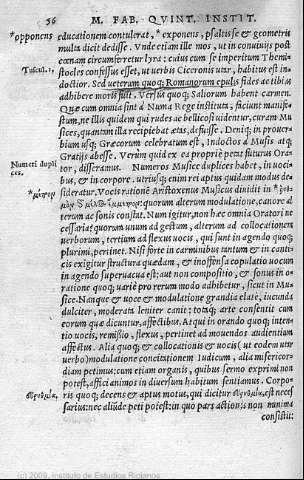 56 M. FAB. QVINT. INSTIT.
*opponens educationem contulerat, *exponens, psaltis & geometris
multa dicit dedisse. Vnde etiam ille mos, ut in conuiuijs post
cœnam circumferretur lyra: cuius cum se imperitum Themi-
Tuscul. 1, stocles confessus esset, ut uerbis Ciceronis utar, habitus est in-
doctior. Sed ueterum quoq; Romanorum epulis fides ac tibias
adhibere moris fuit. Versus quoq; Saliorum habent carmen.
Quæ cum omnia sint à Numa Rege instituta, faciunt manife-
stum, ne illis quidem qui rudes ac bellicosi uidentur, curam Mu-
sices, quantum illa recipiebat ætas, defuisse. Deniq; in prouer-
bium usq; Græcorum celebratum est, Indoctos à Musis atq;
Gratijs abesse. Verùm quid ex ea propriè petat futurus Ora-
Numeri dupli tor, disseramus. Numeros Musice duplices habet, in uoci-
ces, bus, & in corpore. utriusq; enim rei aptus quidam modus de-
sideratur. Vocis rationẽ Aristoxenus Musicus diuidit in
quorum alterum modulatione, canore al
terum ac sonis constat. Num igitur, non hæc omnia Oratori ne
cessaria? quorum unum ad gestum, alterum ad collocationem
uerborum, tertium ad flexus uocis, qui sunt in agendo quoq;
plurimi, pertinet. Nisi forte in carminibus tantum & in canti-
cis exigitur structura quædam, & inoffensa copulatio uocum
in agendo superuacua est; aut non compositio, & sonus in o-
ratione quoq; uariè pro rerum modo adhibetur, sicut in Mu-
sice. Nanque & uoce & modulatione grandia elatè, iucunda
dulciter, moderata leniter canit: totaq; arte consentit cum
eorum quæ dicuntur, affectibus. Atqui in orando quoq; inten-
tio uocis, remissio, flexus, pertinet ad mouendos auditorum
affectus. Alia quoq; & collocationis & uocis (ut eodem utar
uerbo) modulatione concitationem Iudicum, alia misericor-
diam petimus: cum etiam organis, quibus sermo exprimi non
potest, affici animos in diuersum habitum sentiamus. Corpo-
ris quoq; decens & aptus motus, qui dicitur est neces-
sarius: nec aliunde peti potest: in quo pars actionis non minima
consistit:
(c) 2009, Instituto de Estudios Riojanos